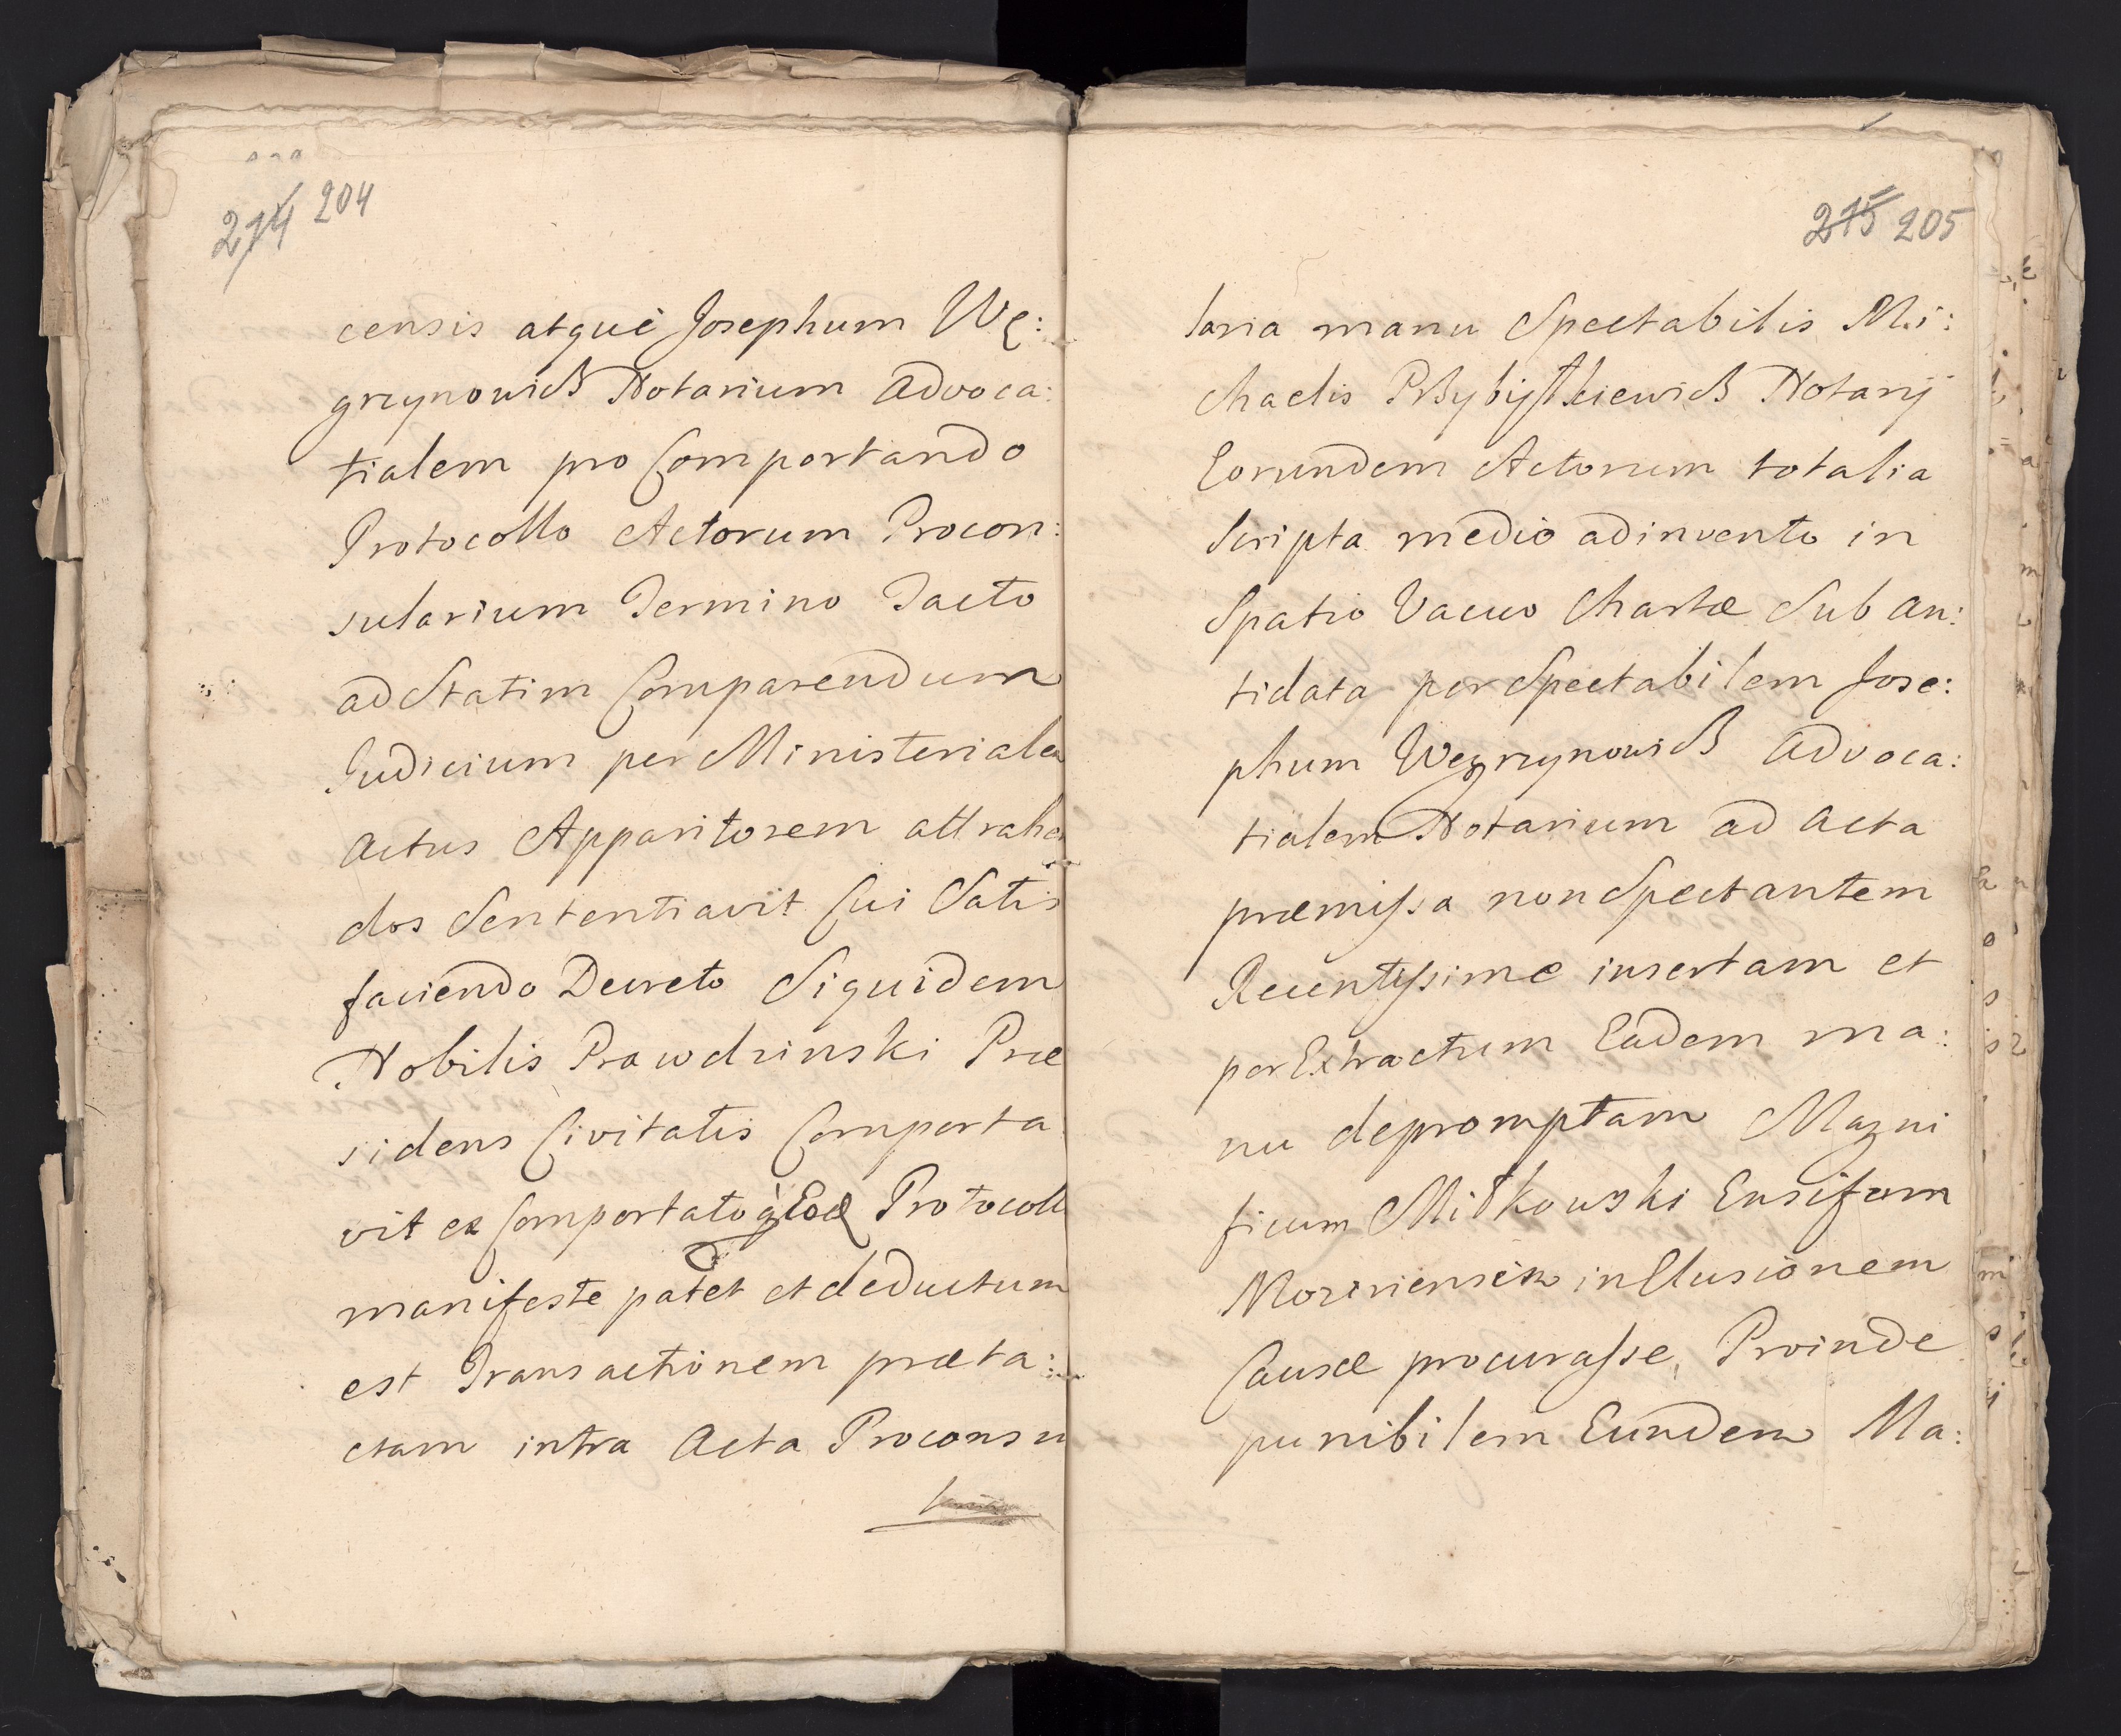 214 204
censis atque Josephum Wę:
grzynowicz Notarium Advoca:
tialem pro Comportando
Protocollo Actorum Procon:
sularium Termino Tacto
ad Statim Comparendum
Judicium per Ministerialem
Actus Apparitorem attrahen
dos Sententiavit Cui Satis
faciendo Decreto Siquidem
Nobilis Prawdzinski Præ
sidens Civitatis Comporta
vit ex Comportato Protocollo
manifeste patet et deductum
est Transactionem præta:
ctam intra Acta Proconsu
laria
215 205
laria manu Spectabilis Mi:
chaelis Przybysłkiewicz Notarij
Eorundem Actorum totalia
Scripta medio adinvento in
Spatio Vacuo Chartæ Sub an:
tidata per Spectabilem Jose:
phum Wegrzynowicz Advoca:
tialem Notarium ad Acta
præmissa non Spectantem
Recentissime insertam et
per Extractum Eadem ma:
nu depromptam Magni
ficum Miłkowski Ensiferum
Mozyriensem in Elusionem
Causæ procurasse, Proinde
punibilem Eundem Ma: